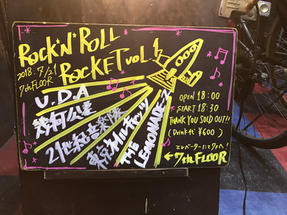 ROCK'N'ROLL
ROCKET vol.
2018.9/21
7th FLOOR
U.D.A
幾何公差
21世紀音楽隊
東京ミルチャッツ
THE LEMONADE-Z
OPEN 18:00
START 18:30
THANK YOU SOLD OUT!!
(Drink代 ¥600)
エレベーターにて7Fへ!
← 7th FLOOR